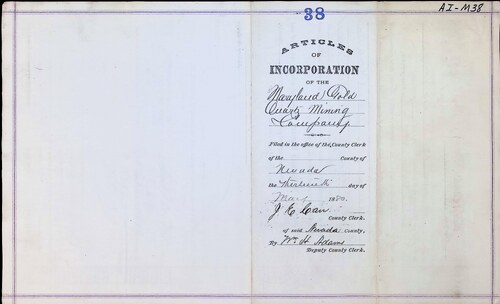 38
AI-M38
ARTICLES
OF
INCORPORATION
OF THE
Maryland Gold
Quartz Mining
Company
Filed in the office of the County Clerk
of the County of
Nevada
the Thirteenth day of
May 1880.
J E Carr
County Clerk.
of said Nevada County,
By Wm H. Adams
Deputy County Clerk.